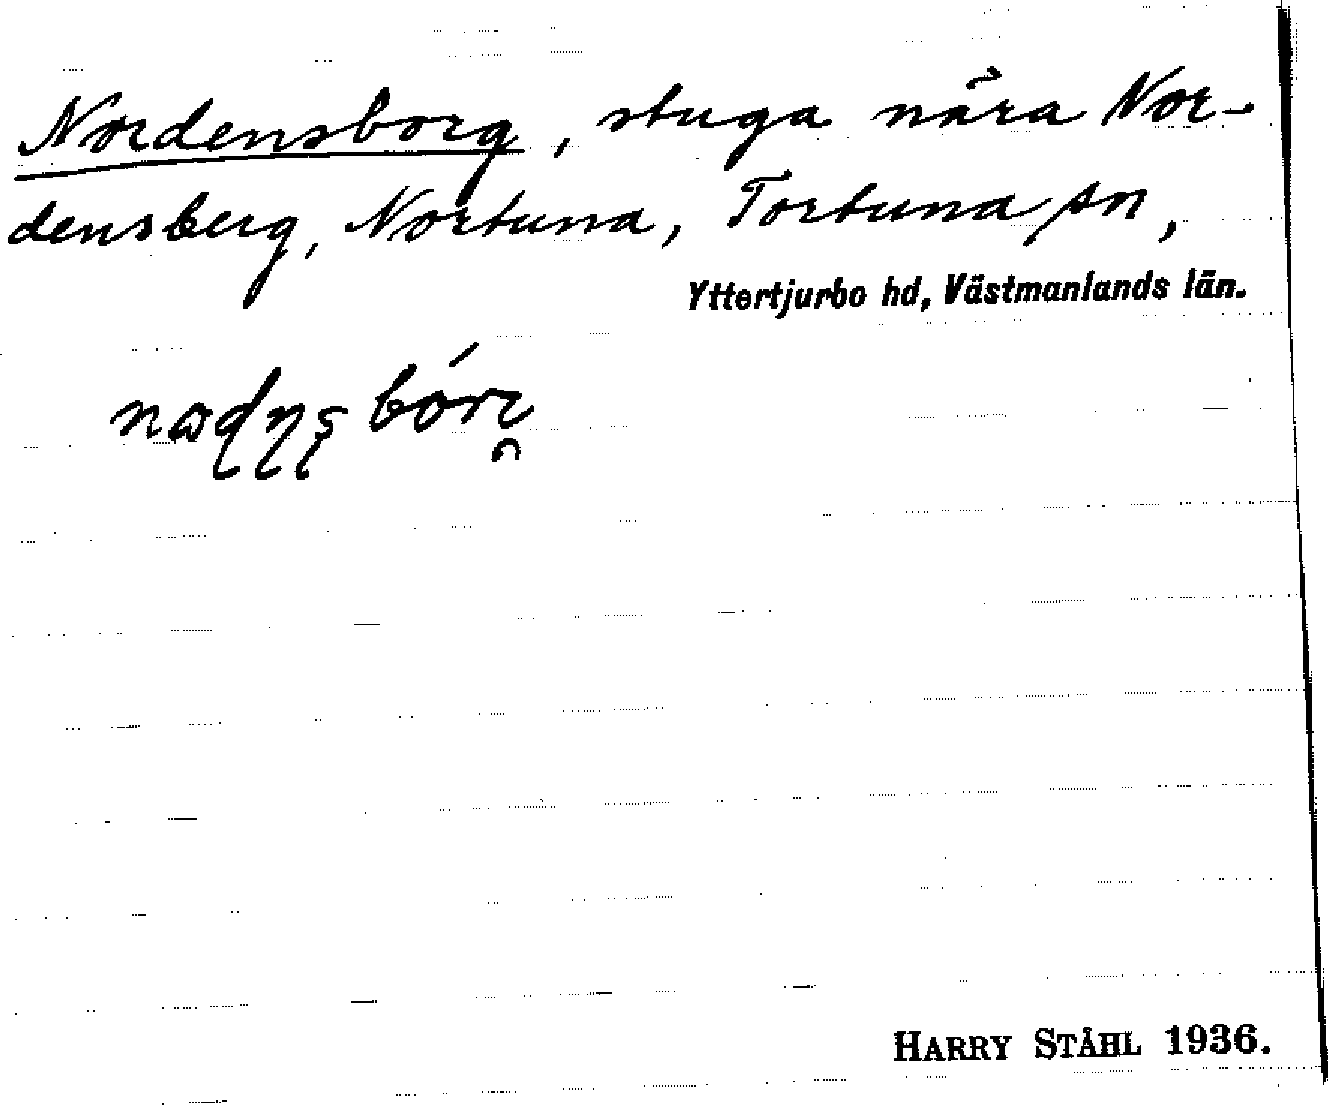 Nordensborg, stuga nära Nor-
densberg, Nortuna, Tortuna sn,
Yttertjurbo hd, Västmanlands län.
HARRY STÅHL 1936.